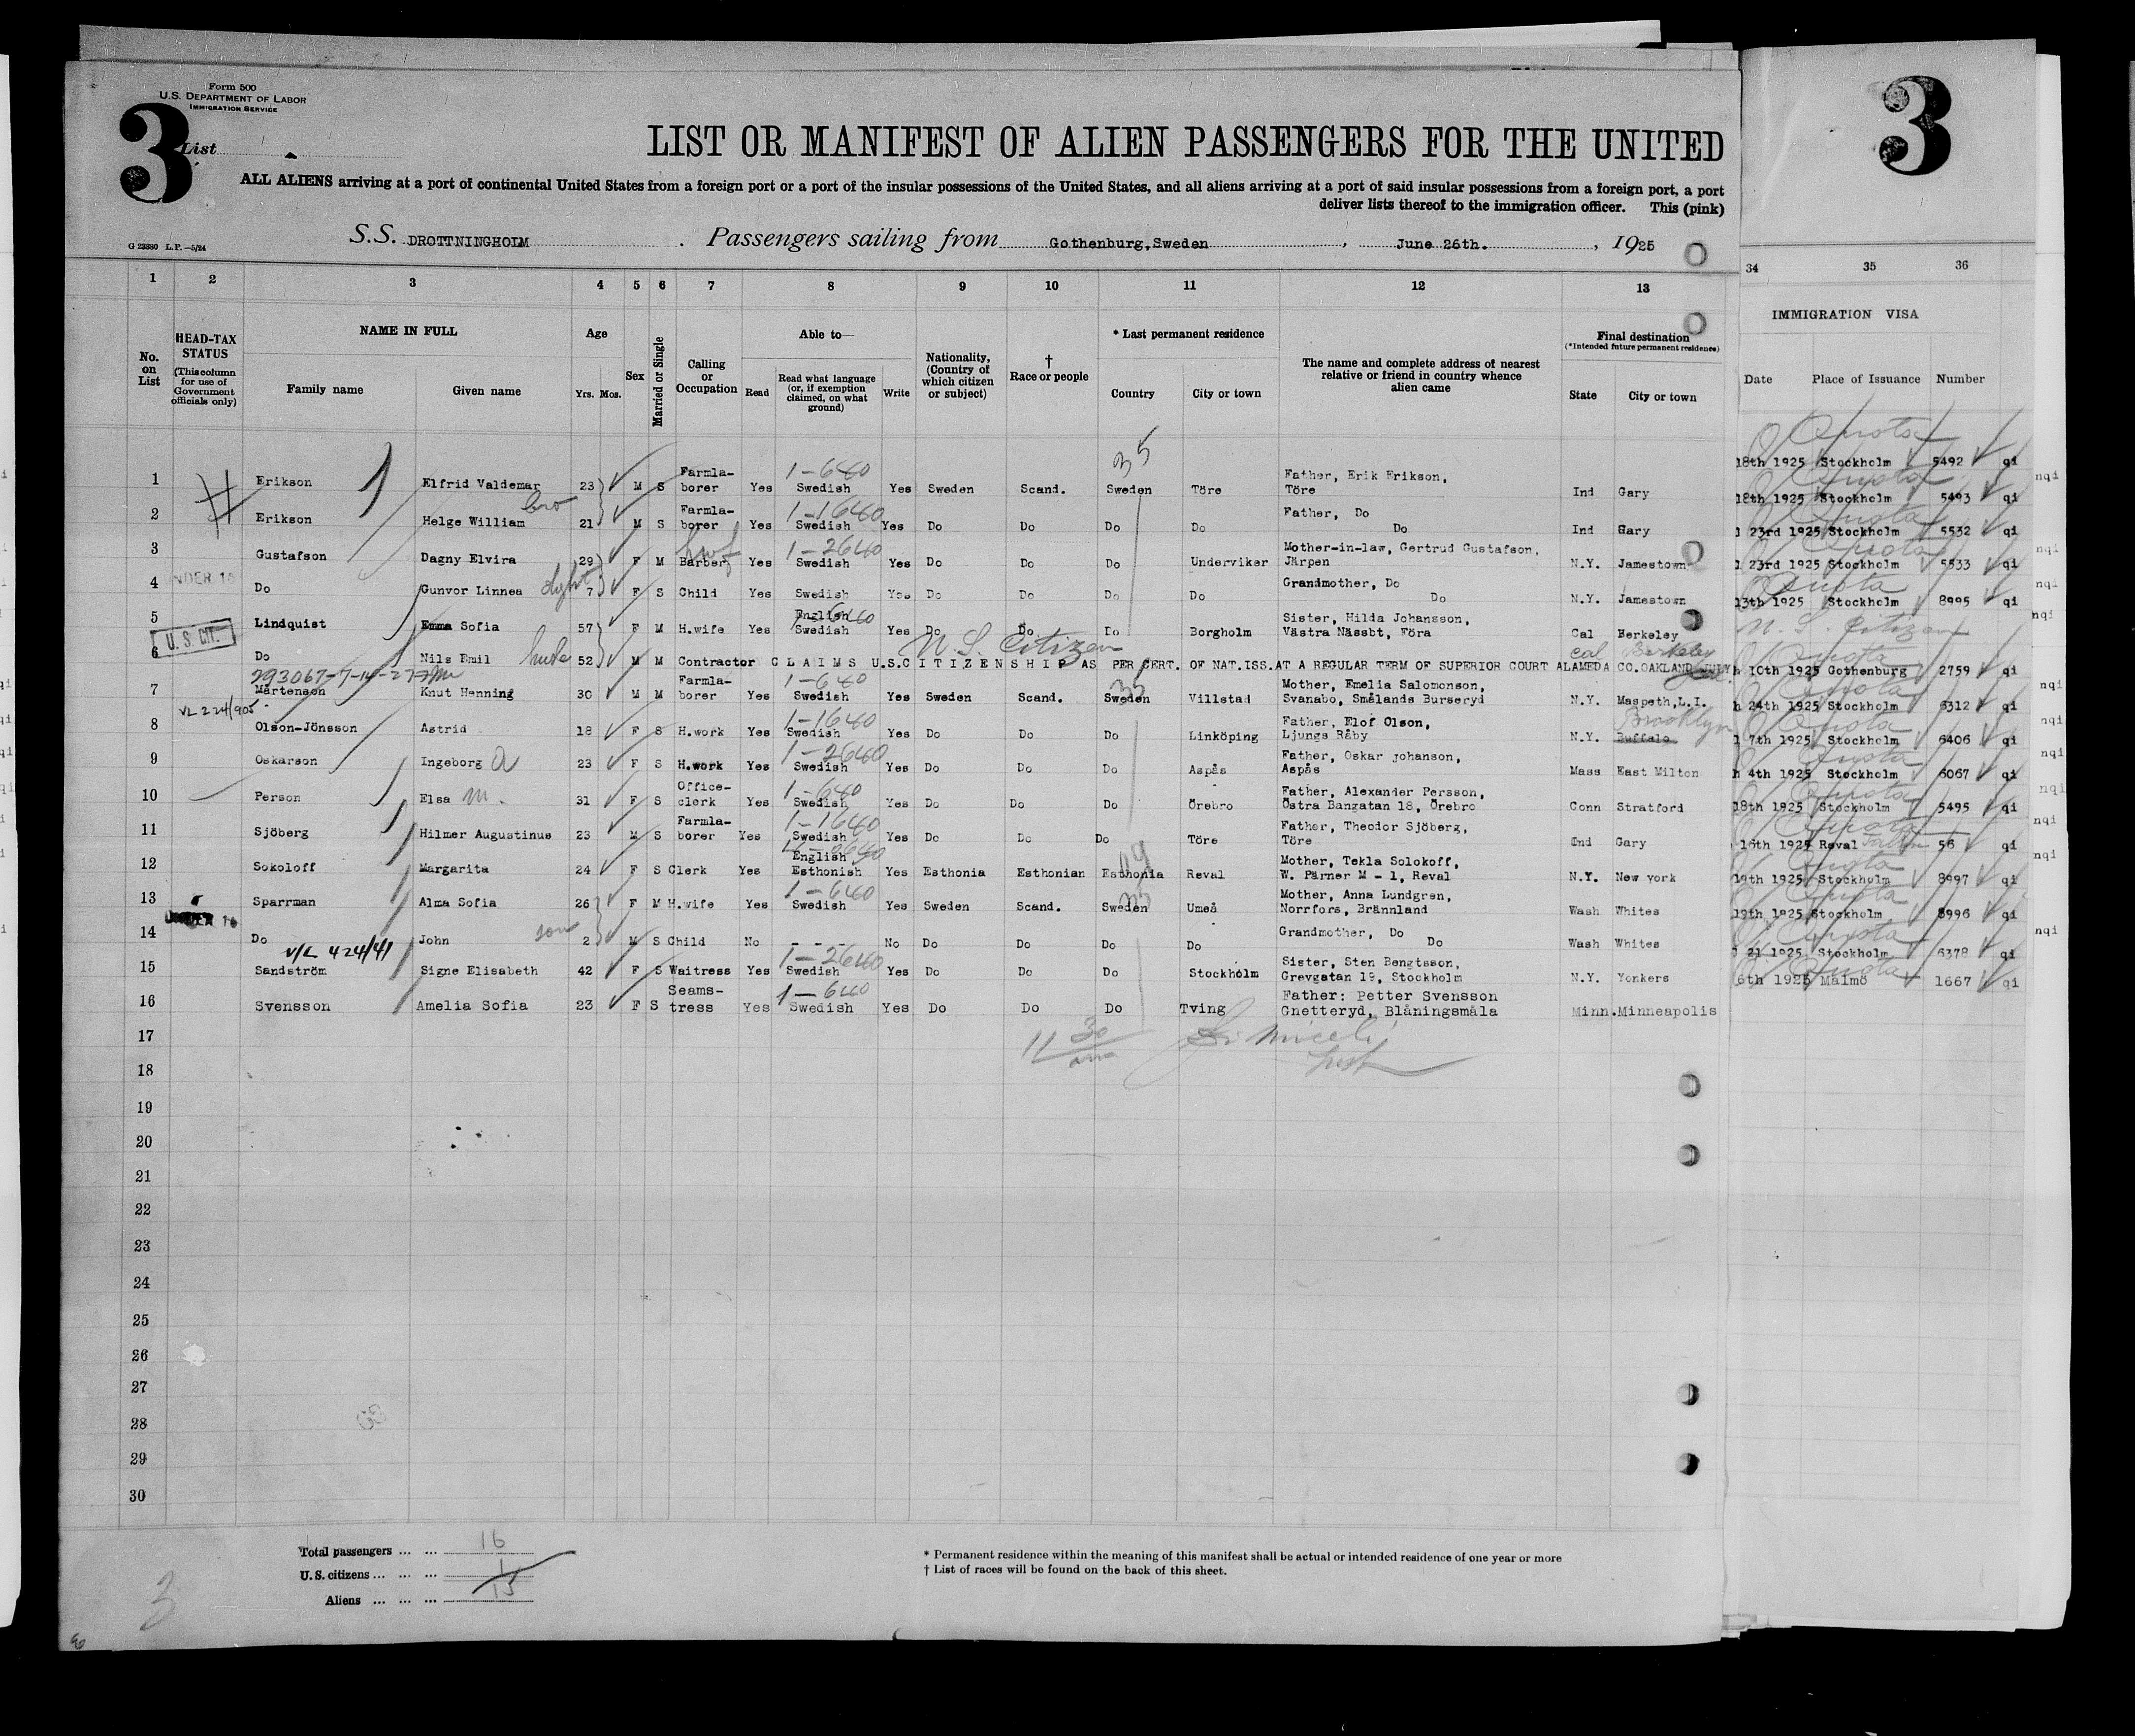 Form 500
U.S. DEPARTMENT OF LABOR
IMMIGRATION SERVICE
3
List
3
LIST OR MANIFEST OF ALIEN PASSENGERS FOR THE UNITED
ALL ALIENS arriving at a port of continental United States from a foreign port or a port of the insular possessions of the United States, and all aliens arriving at a port of said insular possessions from a foreign port, a port
deliver lists thereof to the immigration officer. This (pink)
G 23880 L.P.—5/24
S.S. DROTTNINGHOLM . Passengers sailing from Gothenburg,Sweden , June 26th. , 1925
1 2 3 4 5 6 7 8 9 10 11 12 13 34 35 36
No. on List
HEAD-TAX STATUS (This column for use of Government officials only)
NAME IN FULL
Family name Given name
Age
Yrs. Mos.
Sex
Married or Single
Calling or Occupation
Able to—
Read Read what language (or, if exemption claimed, on what ground) Write
Nationality, (Country of which citizen or subject)
† Race or people
* Last permanent residence
Country City or town
The name and complete address of nearest relative or friend in country whence alien came
Final destination
(*Intended future permanent residence)
State City or town
IMMIGRATION VISA
Date Place of Issuance Number
35
1 Erikson Elfrid Valdemar 23 M S Farmla-borer Yes 1-640 Swedish Yes Sweden Scand. Sweden Töre Father, Erik Erikson, Töre Ind Gary
Quota 18th 1925 Stockholm 5492 qi
2 Erikson Helge William bro 21 M S Farmla-borer Yes 1-1640 Swedish Yes Do Do Do Do Father, Do Do Ind Gary
Quota 18th 1925 Stockholm 5493 qi nqi
3 Gustafson Dagny Elvira 29 F M Barber hwf Yes 1-2640 Swedish Yes Do Do Do Underviker Mother-in-law, Gertrud Gustafson, Järpen N.Y. Jamestown
Quota 23rd 1925 Stockholm 5532 qi
4 NDER 16 Do Gunvor Linnea dght 7 F S Child Yes Swedish Yes Do Do Do Do Grandmother, Do Do N.Y. Jamestown
Quota 23rd 1925 Stockholm 5533 qi nqi
5 Lindquist Emma Sofia 57 F M H.wife Yes English Swedish Yes Do Do Do Borgholm Sister, Hilda Johansson, Västra Nässbt, Föra Cal Berkeley
Quota 13th 1925 Stockholm 8995 qi nqi
U.S. CIT.
U.S. Citizen
Cal Berkeley
6 Do Nils Emil husb 52 M M Contractor CLAIMS U.S.CITIZENSHIP AS PER CERT. OF NAT.ISS.AT A REGULAR TERM OF SUPERIOR COURT ALAMEDA CO.OAKLAND JULY
U.S. Citizen nqi
293067-7-14-27
7 Mårtenson Knut Henning 30 M M Farmla-borer Yes 1-640 Swedish Yes Sweden Scand. Sweden 35 Villstad Mother, Emelia Salomonson, Svanabo, Smålands Burseryd N.Y. Maspeth,L.I.
Quota 10th 1925 Gothenburg 2759 qi
VL 224/905
8 Olson-Jönsson Astrid 18 F S H.work Yes 1-1640 Swedish Yes Do Do Do Linköping Father, Elof Olson, Ljungs Råby N.Y. Buffalo Brooklyn
Quota 24th 1925 Stockholm 6312 qi nqi
9 Oskarson Ingeborg A 23 F S H.work Yes 1-2640 Swedish Yes Do Do Do Aspås Father, Oskar johanson, Aspås Mass East Milton
Quota 7th 1925 Stockholm 6406 qi nqi
10 Person Elsa M. 31 F S Office-clerk Yes 1-640 Swedish Yes Do Do Do Örebro Father, Alexander Persson, Östra Bangatan 18, Örebro Conn Stratford
Quota 4th 1925 Stockholm 6067 qi nqi
11 Sjöberg Hilmer Augustinus 23 M S Farmla-borer Yes 1-1640 Swedish Yes Do Do Do Töre Father, Theodor Sjöberg, Töre Ind Gary
Quota 18th 1925 Stockholm 5495 qi nqi
12 Sokoloff Margarita 24 F S Clerk Yes English Esthonish Yes Esthonia Esthonian Esthonia Reval Mother, Tekla Solokoff, W. Pärner M - 1, Reval N.Y. New york
Quota 16th 1925 Reval 56 qi nqi
13 Sparrman Alma Sofia 26 F M H.wife Yes 1-640 Swedish Yes Sweden Scand. Sweden 35 Umeå Mother, Anna Lundgren, Norrfors, Brännland Wash Whites
Quota 19th 1925 Stockholm 8997 qi nqi
14 UNDER 16 Do John son 2 M S Child No - - - No Do Do Do Do Grandmother, Do Do Wash Whites
Quota 19th 1925 Stockholm 8996 qi
V/L 424/41
15 Sandström Signe Elisabeth 42 F S Waitress Yes 1-2640 Swedish Yes Do Do Do Stockholm Sister, Sten Bengtsson, Grevgatan 19, Stockholm N.Y. Yonkers
Quota 21 1925 Stockholm 6378 qi nqi
16 Svensson Amelia Sofia 23 F S Seams-tress Yes 1-640 Swedish Yes Do Do Do Tving Father: Petter Svensson Gnetteryd, Blåningsmåla Minn. Minneapolis
Quota 6th 1925 Malmö 1667 qi
17
11 30 am
18
19
20
21
22
23
24
25
26
27
28
29
30
Total passengers ... ... 16
U.S. citizens ... ... ... 1
Aliens ... ... ... 15
* Permanent residence within the meaning of this manifest shall be actual or intended residence of one year or more
† List of races will be found on the back of this sheet.
3